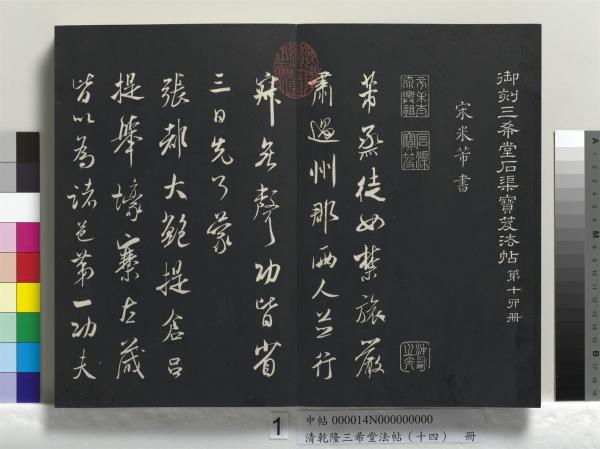 御刻三希堂石渠寶笈法帖 第十四册
宋米芾書
石渠
寶笈
芾烝徒如禁旅嚴
肅過州郡兩人並行
寂無聲功皆省
三日先了蒙
張都大鮑提倉呂
提舉壕寨左藏
皆以為諸邑第一功夫
1
中帖 000014N000000000
清乾隆三希堂法帖（十四） 冊